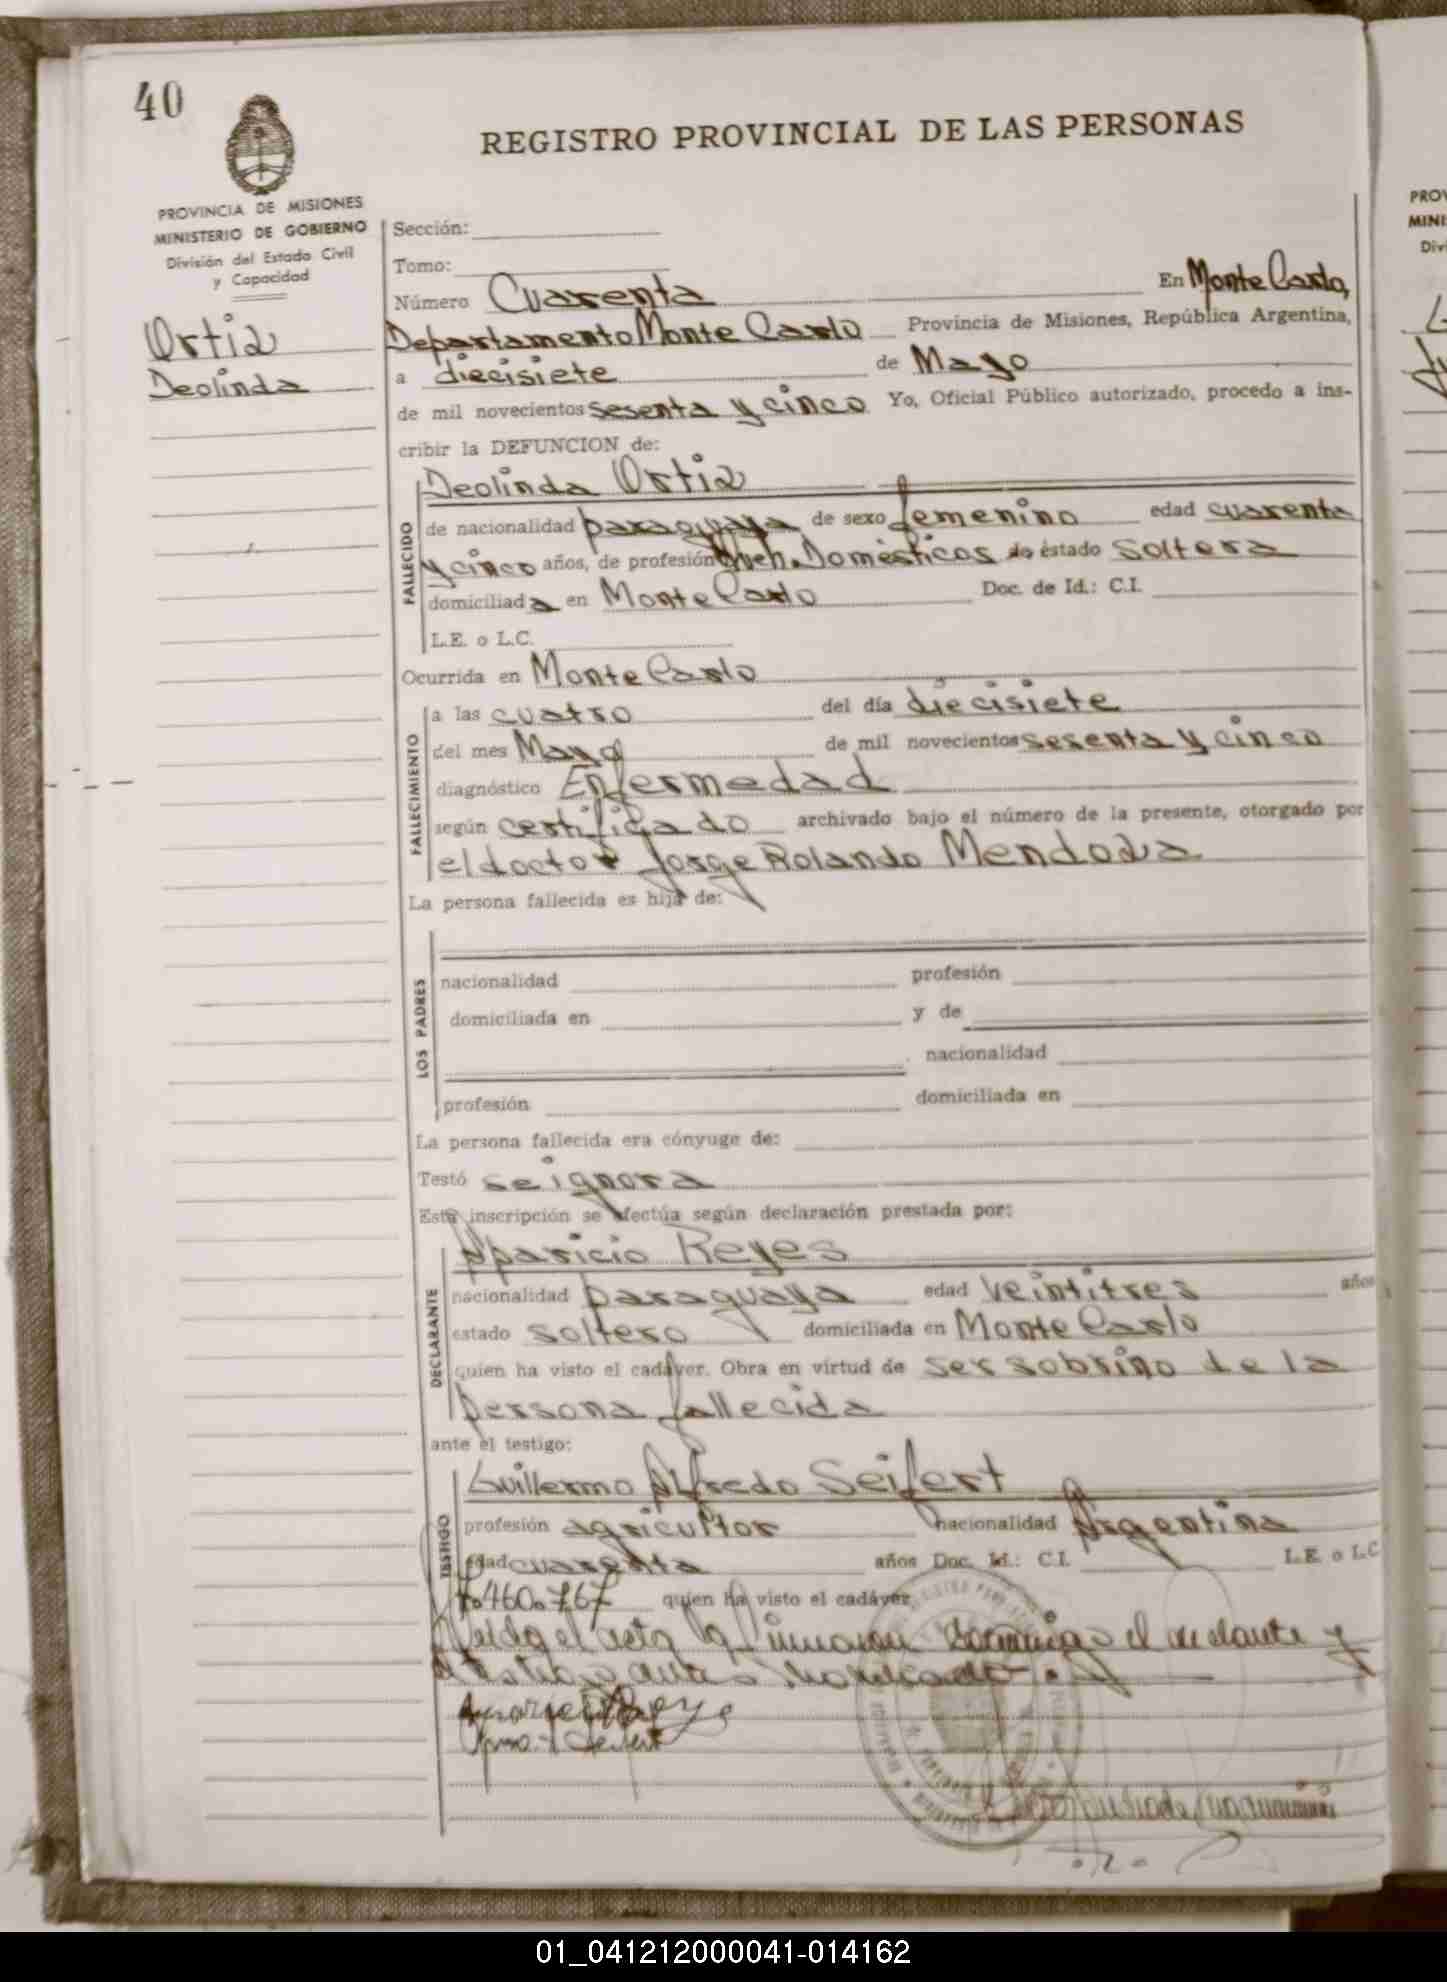 40
REGISTRO PROVINCIAL DE LAS PERSONAS
PROVINCIA DE MISIONES
MINISTERIO DE GOBIERNO
División del Estado Civil
y Capacidad
Ortiz
Deolinda
Sección:
Tomo:
Número Cuarenta En Monte Carlo,
Departamento Monte Carlo Provincia de Misiones, República Argentina,
a diecisiete de Mayo
de mil novecientos sesenta y cinco Yo, Oficial Público autorizado, procedo a ins-
cribir la DEFUNCION de:
Deolinda Ortiz
FALLECIDO
de nacionalidad paraguaya de sexo femenino edad cuarenta
y cinco años, de profesión Queh. Domésticos de estado soltera
domiciliada en Monte Carlo Doc. de Id.: C.I.
L.E. o L.C.
Ocurrida en Monte Carlo
FALLECIMIENTO
a las cuatro del día diecisiete
del mes Mayo de mil novecientos sesenta y cinco
diagnóstico Enfermedad
según certificado archivado bajo el número de la presente, otorgado por
el doctor Jorge Rolando Mendoza
La persona fallecida es hija de:
LOS PADRES
nacionalidad profesión
domiciliada en y de
nacionalidad
profesión domiciliada en
La persona fallecida era cónyuge de:
Testó se ignora
Esta inscripción se efectúa según declaración prestada por:
Aparicio Reyes
DECLARANTE
nacionalidad paraguaya edad veintitres años
estado soltero domiciliada en Monte Carlo
quien ha visto el cadáver. Obra en virtud de ser sobrino de la
persona fallecida
ante el testigo:
Guillermo Alfredo Seifert
TESTIGO
profesión agricultor nacionalidad Argentina
edad cuarenta años Doc. Id.: C.I. L.E. o L.C
460.767 quien ha visto el cadáver
el acta la conmigo el y
Reyes
Seifert
PROV
MINI
Div
01_041212000041-014162